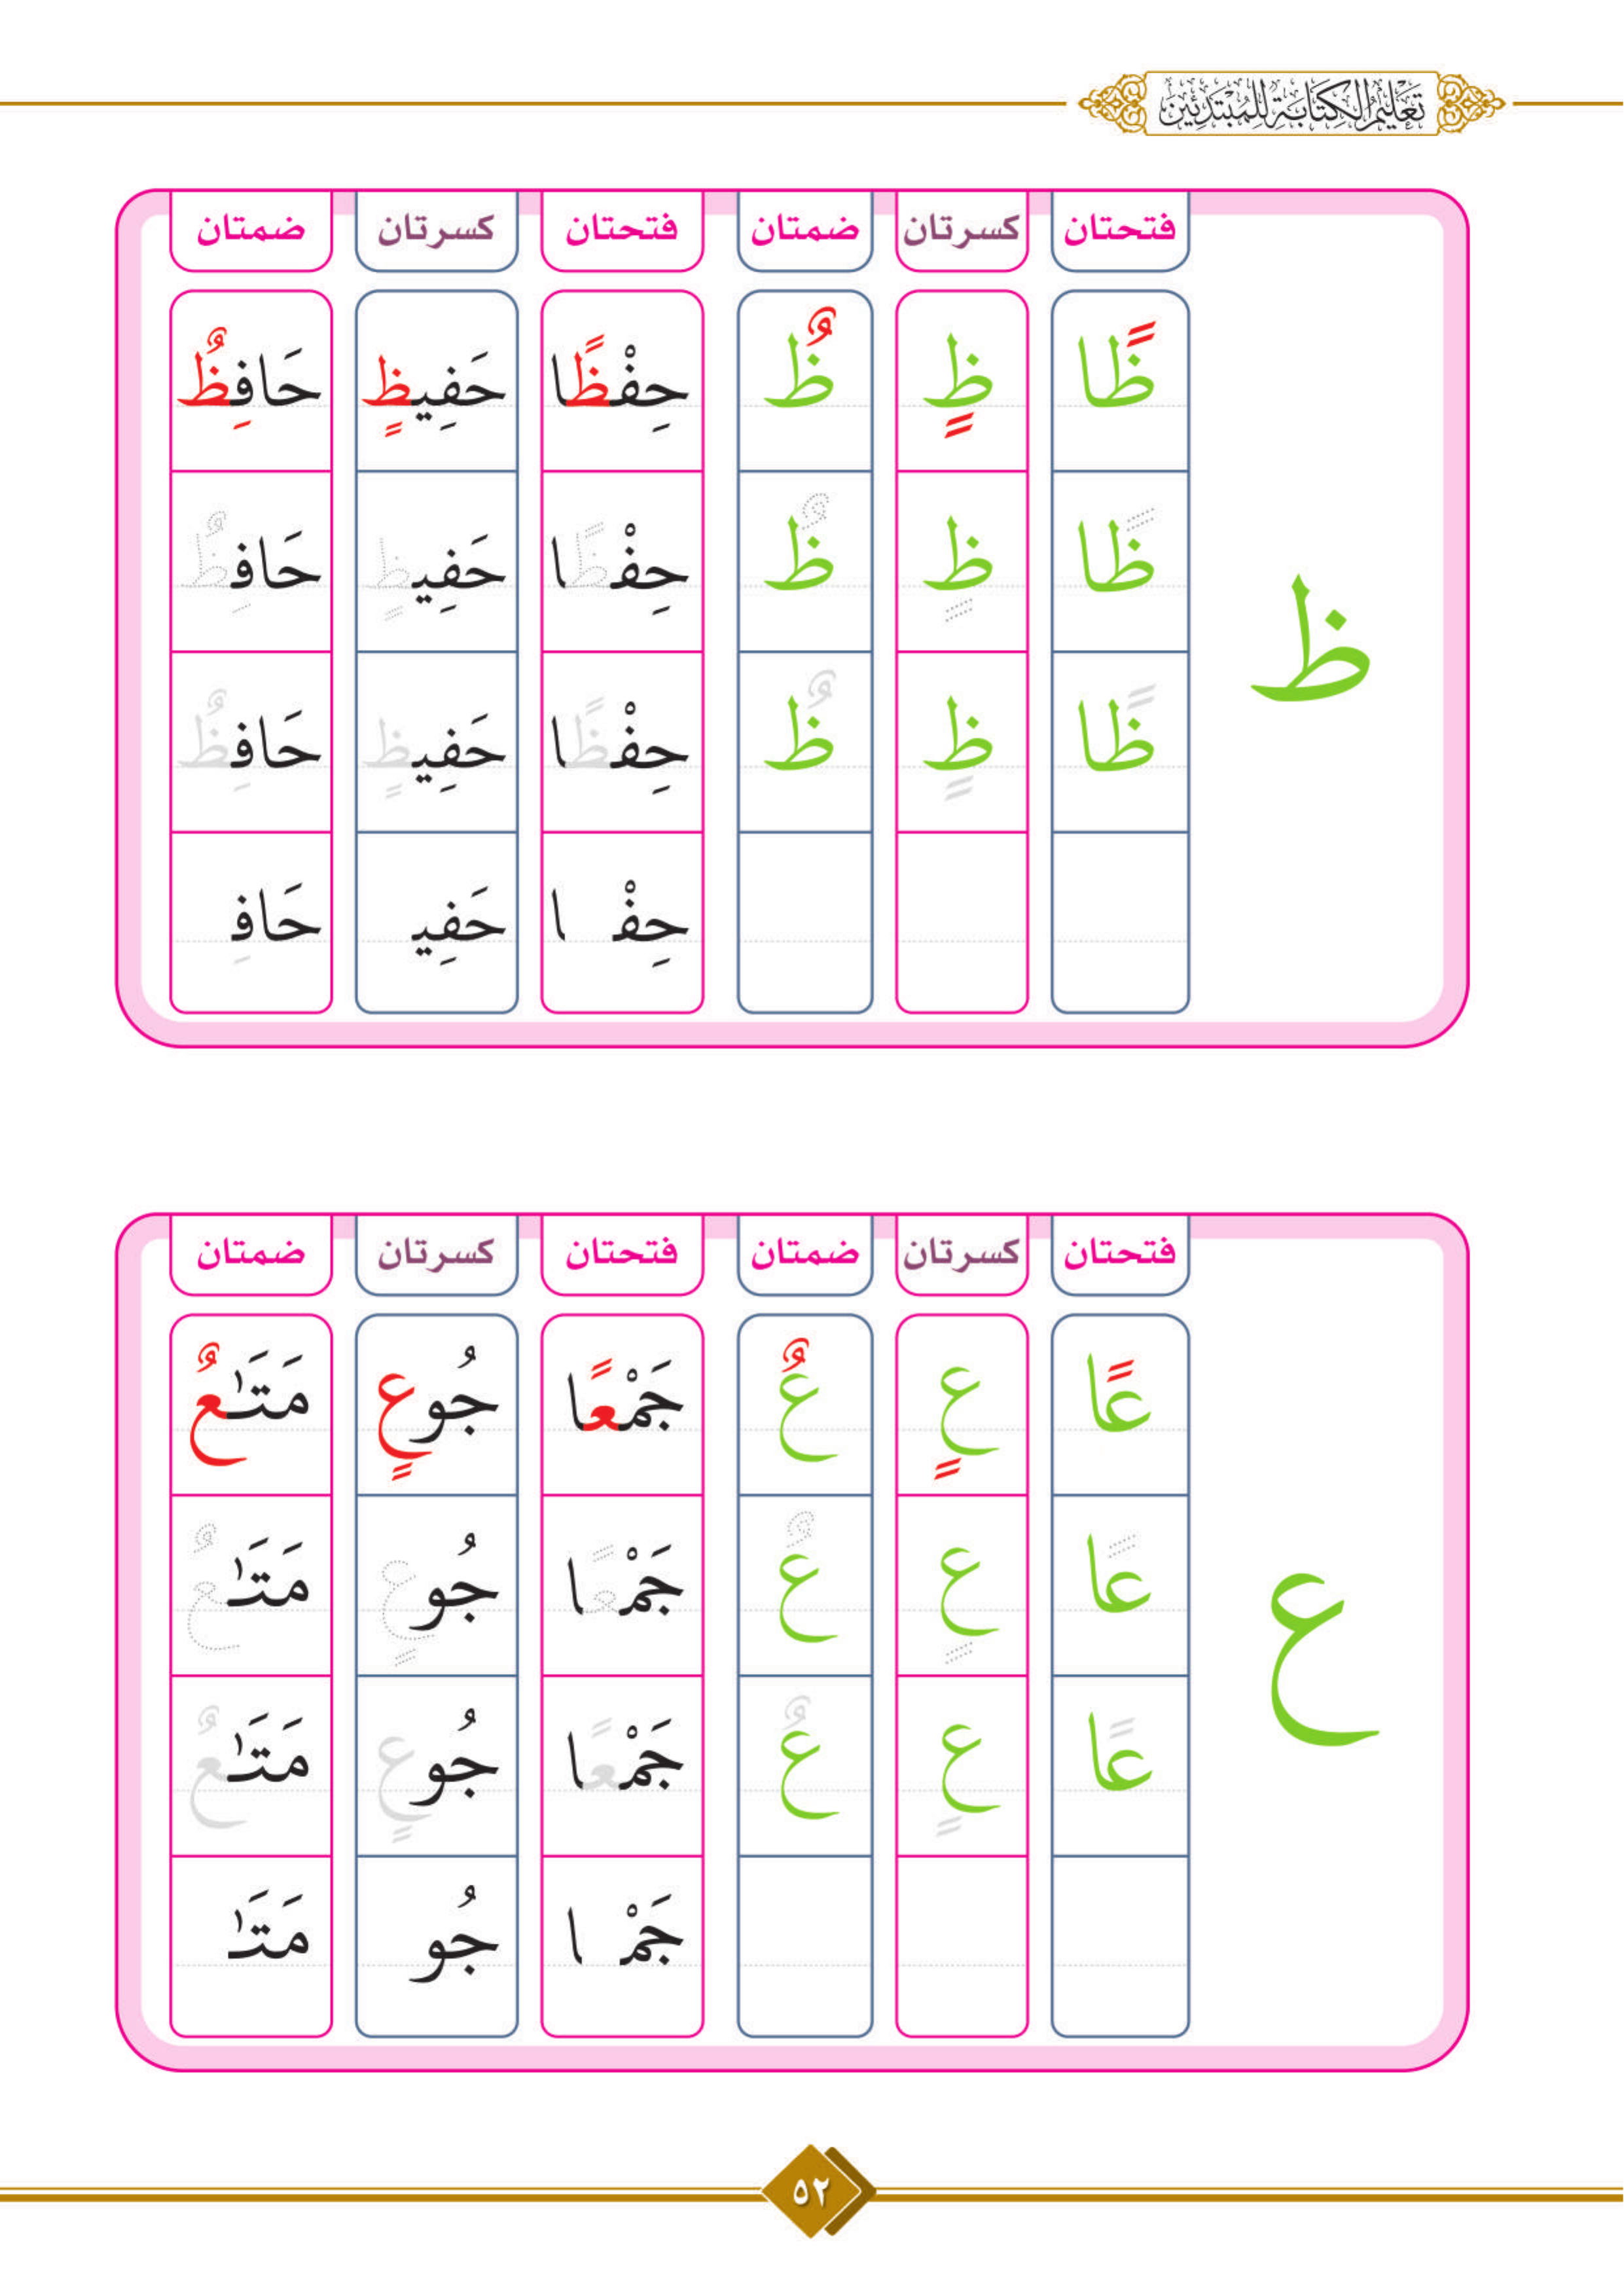 تَعْلِيمُ الْكِتَابَةِ لِلْمُبْتَدِئِينَ
فتحتان كسرتان ضمتان فتحتان كسرتان ضمتان
ظًا ظٍ ظٌ حِفْظًا حَفِيظٍ حَافِظٌ
ظًا ظٍ ظٌ حِفْظًا حَفِيظٍ حَافِظٌ
ظ
ظًا ظٍ ظٌ حِفْظًا حَفِيظٍ حَافِظٌ
حِفْـ ـا حَفِيـ حَافِـ
فتحتان كسرتان ضمتان فتحتان كسرتان ضمتان
عًا عٍ عٌ جَمْعًا جُوعٍ مَتَـٰعٌ
عًا عٍ عٌ جَمْعًا جُوعٍ مَتَـٰعٌ
ع
عًا عٍ عٌ جَمْعًا جُوعٍ مَتَـٰعٌ
جَمْـ ـا جُو مَتَـٰ
٥٢